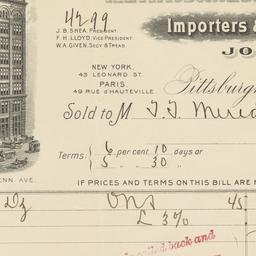 4299
Importers &
J. B. SHEA, PRESIDENT.
F. H. LLOYD, VICE PRESIDENT.
W. A. GIVEN, SECY & TREAS.
JO
NEW YORK.
43 LEONARD ST.
PARIS.
49 RUE D'HAUTEVILLE.
Pittsburgh
Sold to M
Terms: 6 per cent 10 days or
5 " 30 "
ENN AVE.
IF PRICES AND TERMS ON THIS BILL ARE
Dz 4/5
£ 3%
called back and